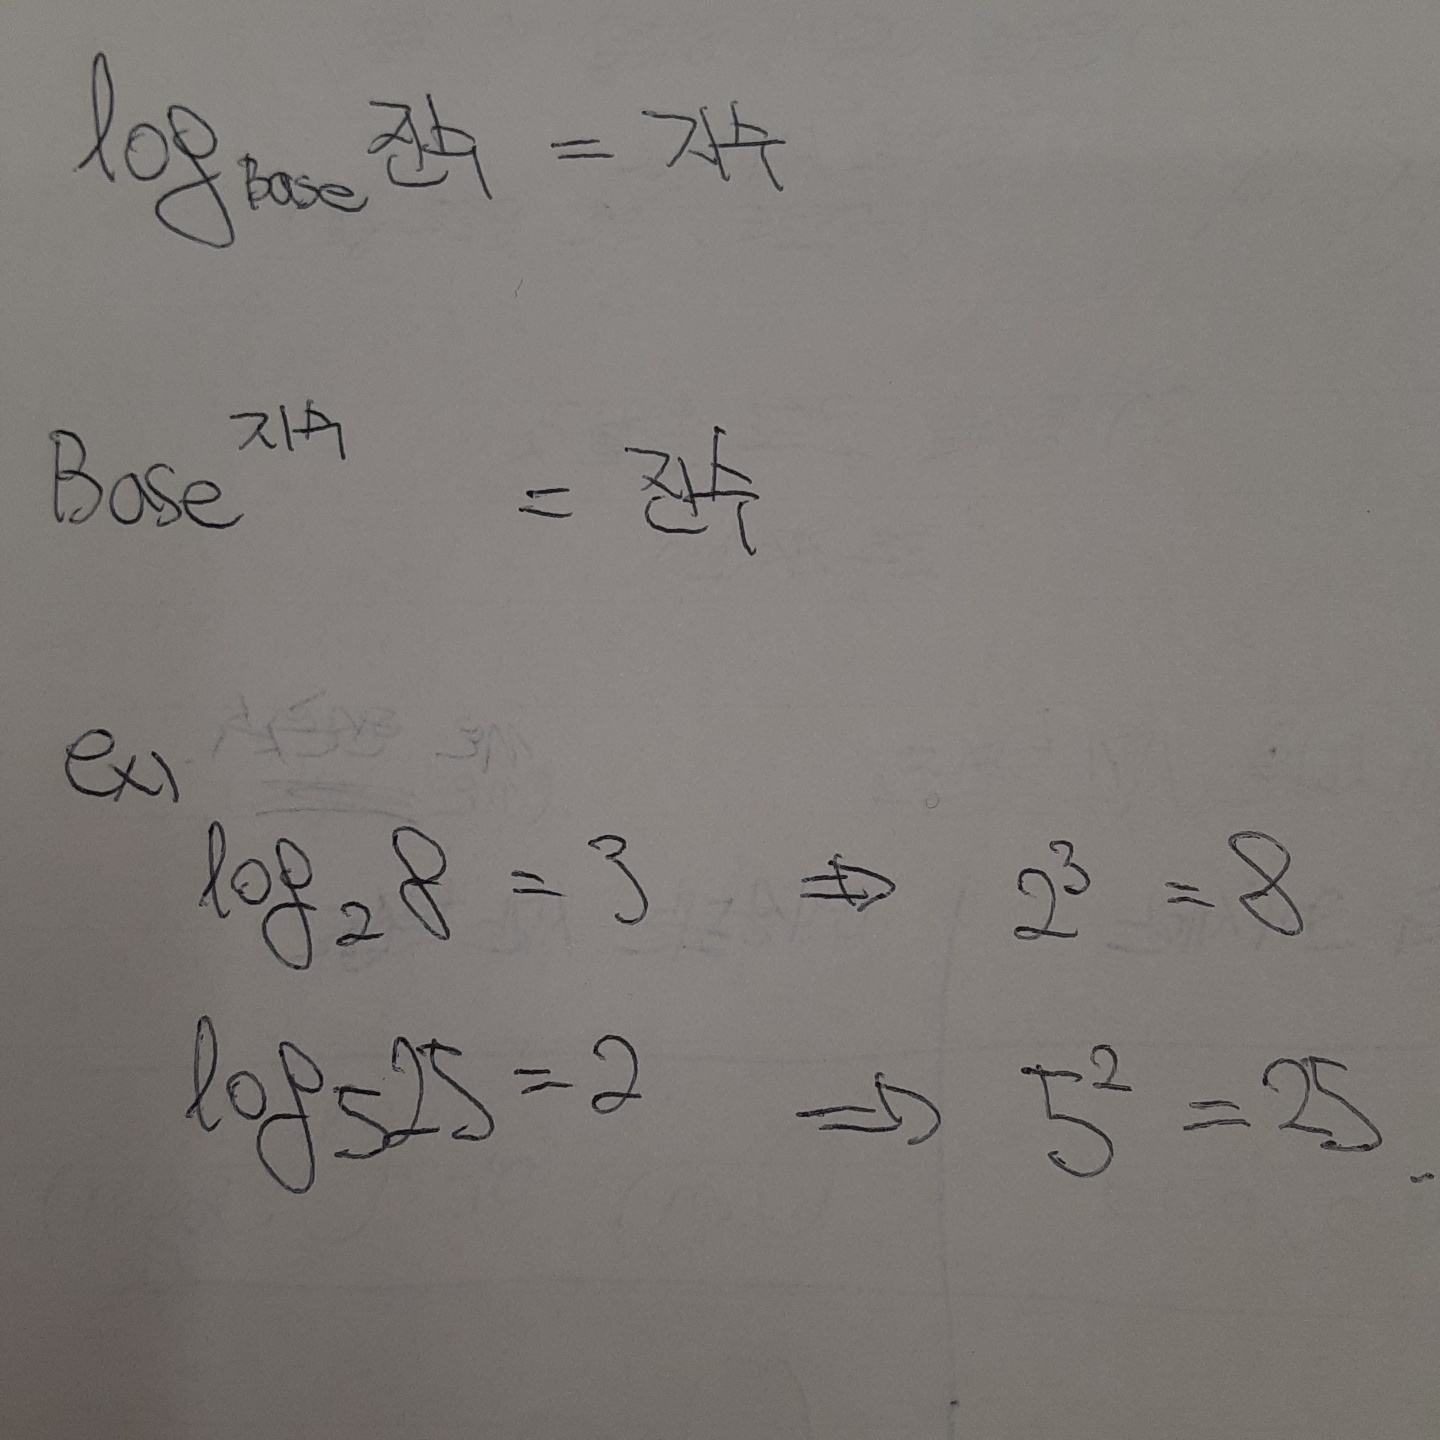 log_Base 진수 = 지수
Base^지수 = 진수
ex)
log_2 8 = 3 ⇒ 2^3 = 8
log_5 25 = 2 ⇒ 5^2 = 25.